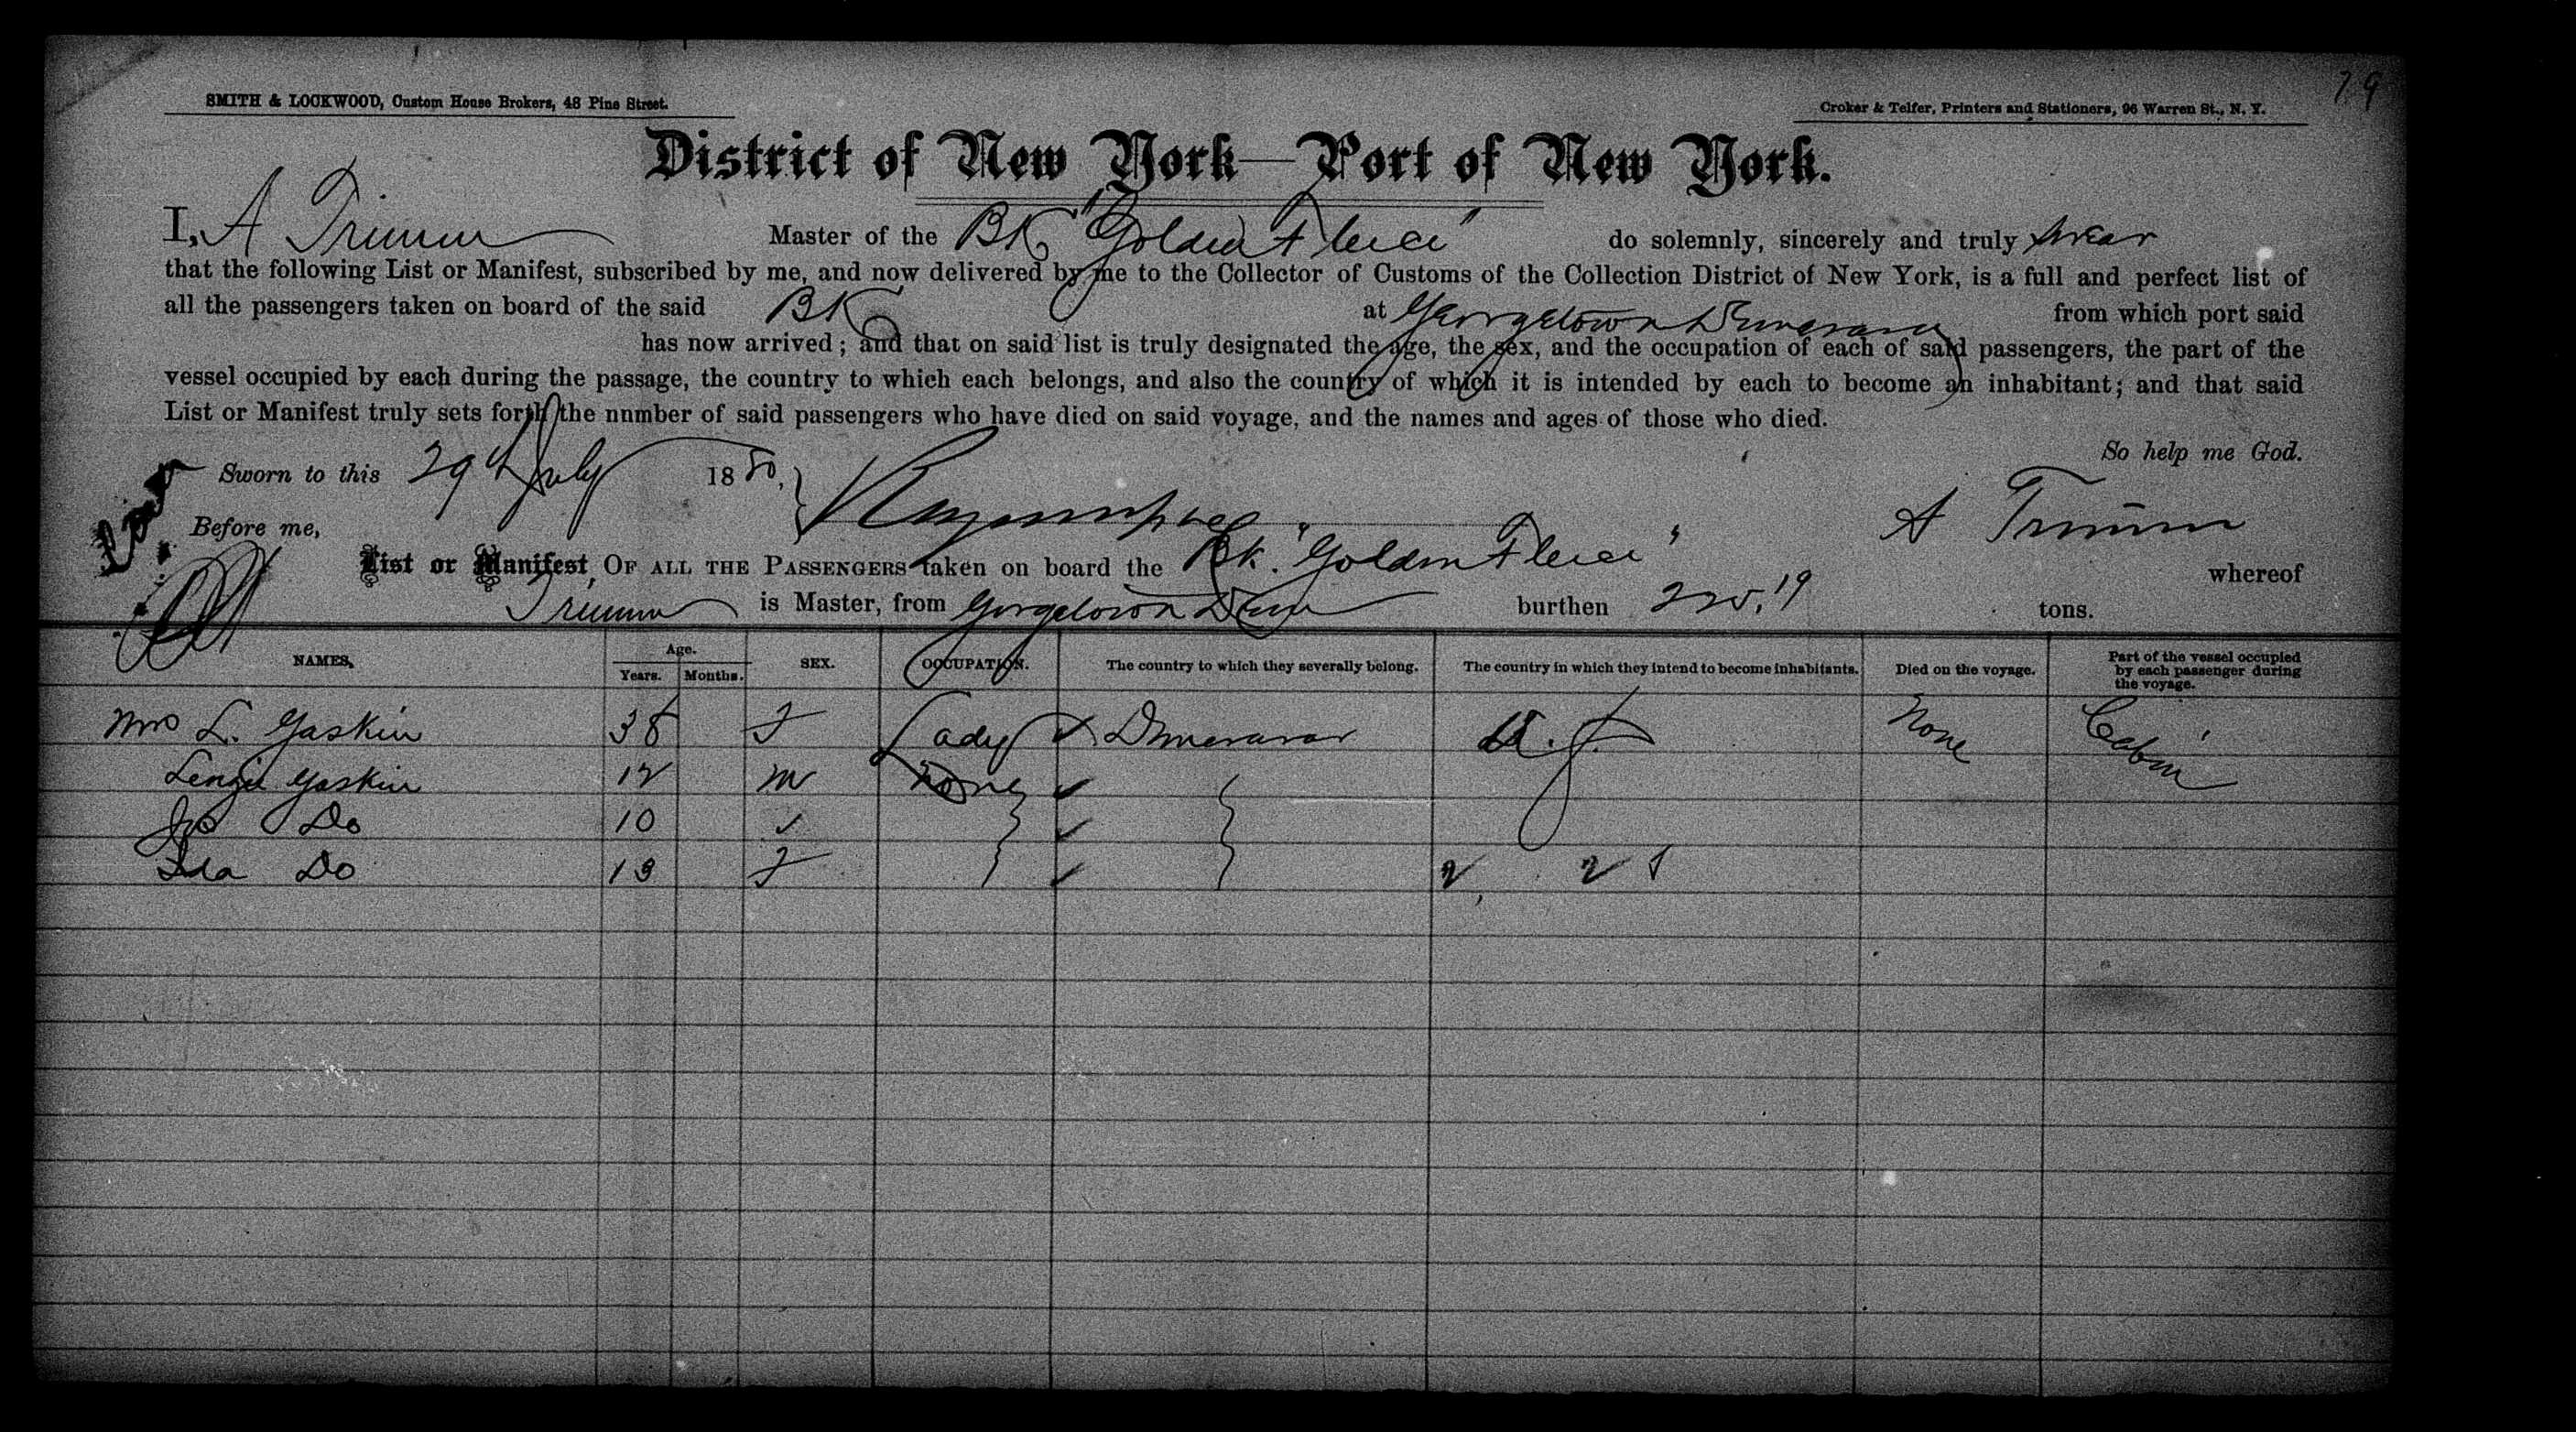 79
SMITH & LOCKWOOD, Custom House Brokers, 48 Pine Street.
Croker & Telfer, Printers and Stationers, 96 Warren St., N. Y.
District of New York—Port of New York.
I, A Trimm Master of the BK "Golden Fleece" do solemnly, sincerely and truly swear
that the following List or Manifest, subscribed by me, and now delivered by me to the Collector of Customs of the Collection District of New York, is a full and perfect list of
all the passengers taken on board of the said BK at Georgetown Demerara from which port said
has now arrived; and that on said list is truly designated the age, the sex, and the occupation of each of said passengers, the part of the
vessel occupied by each during the passage, the country to which each belongs, and also the country of which it is intended by each to become an inhabitant; and that said
List or Manifest truly sets forth the nnmber of said passengers who have died on said voyage, and the names and ages of those who died.
So help me God.
Sworn to this 29th July 1880,
A Trimm
Before me,
List or Manifest, OF ALL THE PASSENGERS taken on board the Bk. "Golden Fleece" whereof
Trimm is Master, from Georgetown Dem burthen 225.19 tons.
NAMES. Age. Years. Months. SEX. OCCUPATION. The country to which they severally belong. The country in which they intend to become inhabitants. Died on the voyage. Part of the vessel occupied by each passenger during the voyage.
Mrs L. Gaskin 38 F Lady ✓ Demerara None Cabin
Gaskin 12 M None ✓
Jno Do 10 ✓ ✓
Ida Do 13 F ✓